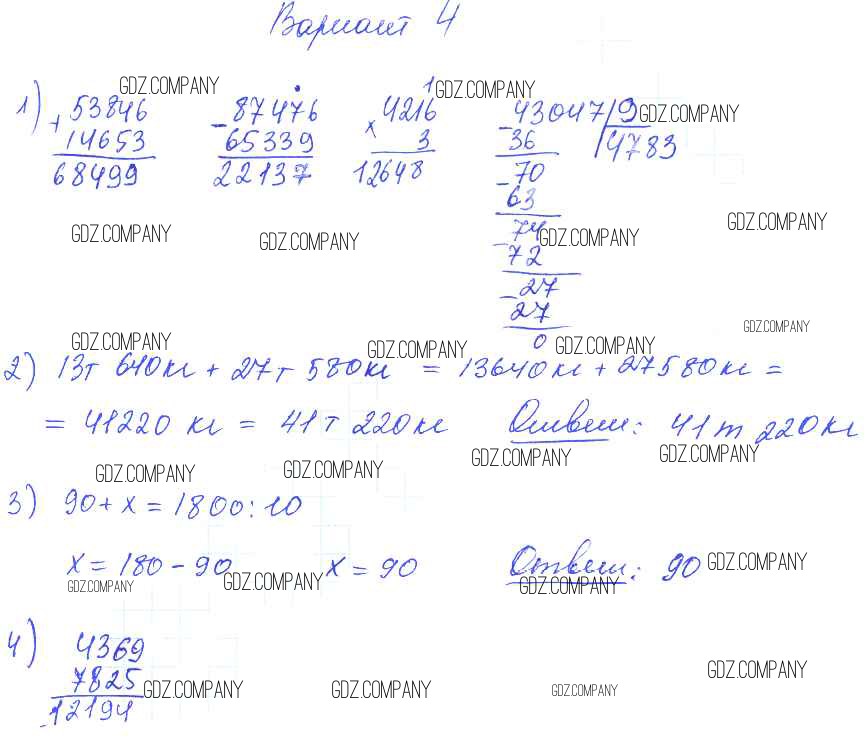 Вариант 4
GDZ.COMPANY GDZ.COMPANY
1) + 53846 - 87476 × 4216 - 43047 | 9 GDZ.COMPANY
14653 65339 3 36 4783
68499 22137 12648 - 70
63
GDZ.COMPANY GDZ.COMPANY 74 GDZ.COMPANY GDZ.COMPANY
- 72
- 27
27
GDZ.COMPANY GDZ.COMPANY 0 GDZ.COMPANY GDZ.COMPANY
2) 13т 640кг + 27т 580кг = 13640кг + 27580кг =
= 41220 кг = 41т 220кг Ответ: 41т 220кг
GDZ.COMPANY GDZ.COMPANY GDZ.COMPANY GDZ.COMPANY
3) 90 + x = 1800 : 10
x = 180 - 90 x = 90 Ответ: 90 GDZ.COMPANY
GDZ.COMPANY GDZ.COMPANY GDZ.COMPANY
4) 4369
7825 GDZ.COMPANY GDZ.COMPANY GDZ.COMPANY GDZ.COMPANY
12194